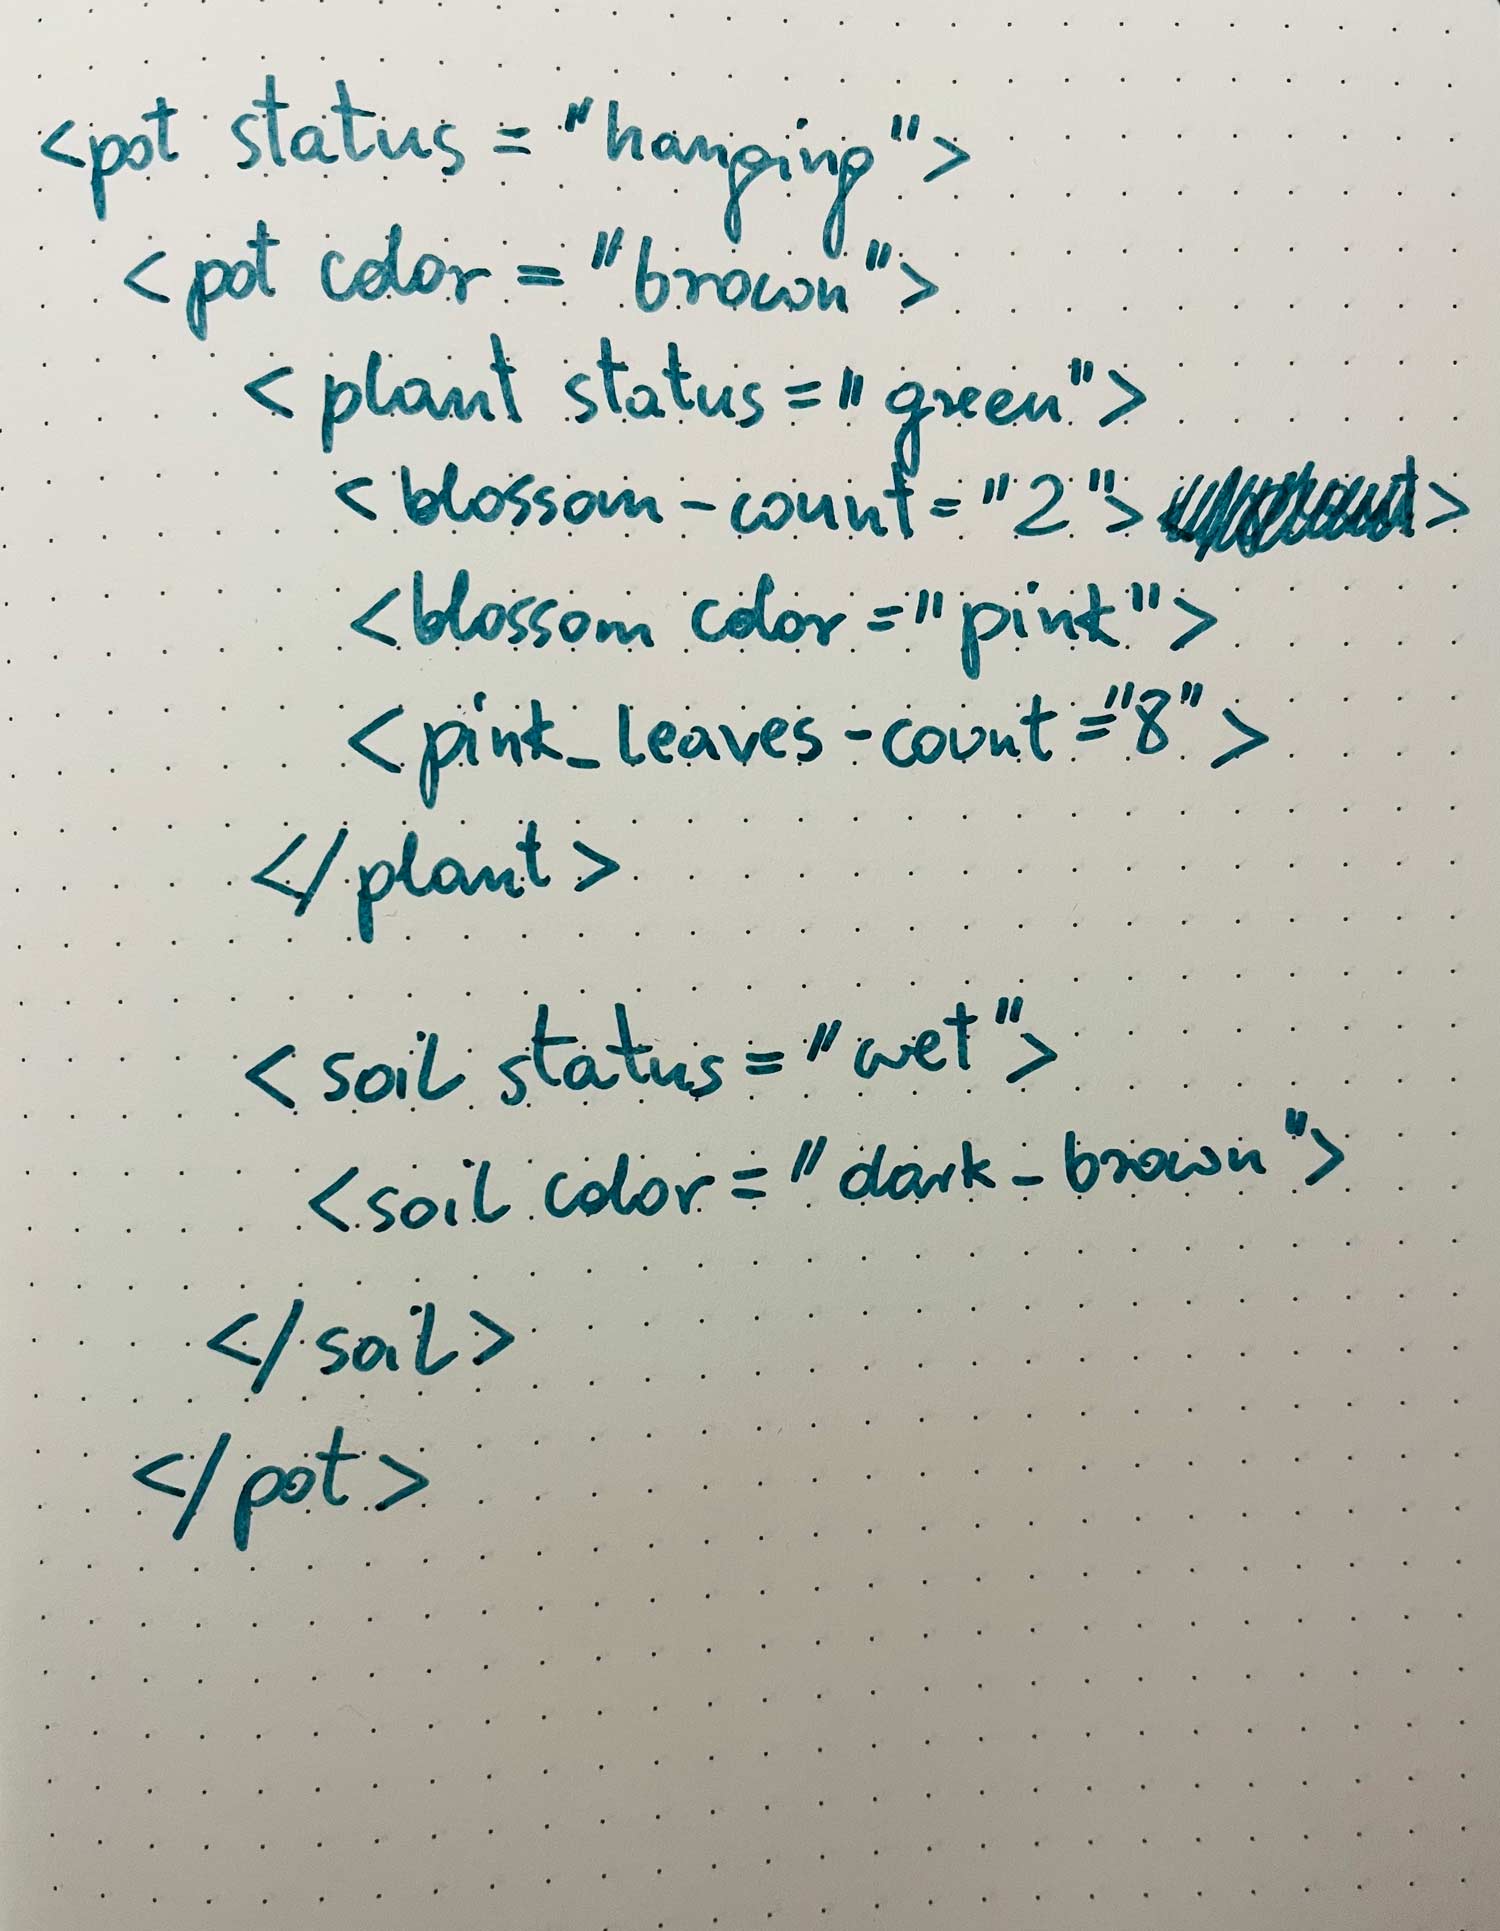 <pot status = "hanging">
<pot color = "brown">
<plant status = "green">
<blossom-count = "2"> >
<blossom color = "pink">
<pink_leaves-count = "8">
</plant>
<soil status = "wet">
<soil color = "dark_brown">
</soil>
</pot>